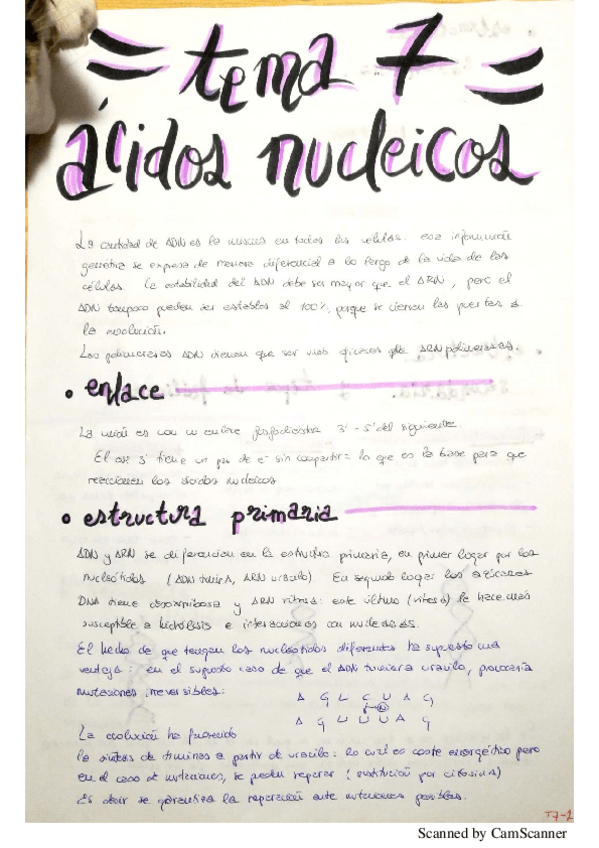 = tema 7 =
ácidos nucleicos
La cantidad de ADN es la misma en todas las células: esa información
genética se expresa de manera diferencial a lo largo de la vida de las
células. La estabilidad del ADN debe ser mayor que el ARN, pero el
ADN tampoco pueden ser estables al 100%, porque se cierran las puertas a
la evolución.
Las polimerasas ADN tienen que ser más eficaces ARN polimerasas.
• enlace
La unión es con un enlace fosfodiester 3' - 5' del siguiente.
El 3' tiene un par de e- sin compartir = lo que es la base para que
reaccionen los ácidos nucleicos
• estructura primaria
ADN y ARN se diferencian en la estructura primaria, en primer lugar por los
nucleótidos (ADN timina, ARN uracilo) En segundo lugar los azúcares
DNA tiene desoxirribosa y ARN ribosa: este último (ribosa) le hace más
susceptible a hidrólisis e interacciones con nucleasas.
El hecho de que tengan los nucleótidos diferentes ha supuesto una
ventaja: en el supuesto caso de que el ADN tuviera uracilo, provocaría
mutaciones irreversibles:
A G U C U A G
A G U U U A G
La evolución ha favorecido
la síntesis de timinas a partir de uracilo: lo cual es coste energético pero
en el caso de mutaciones, se pueden reparar (sustitución por citosinas)
Es decir se garantiza la reparación ante mutaciones posibles.
T7-1
Scanned by CamScanner